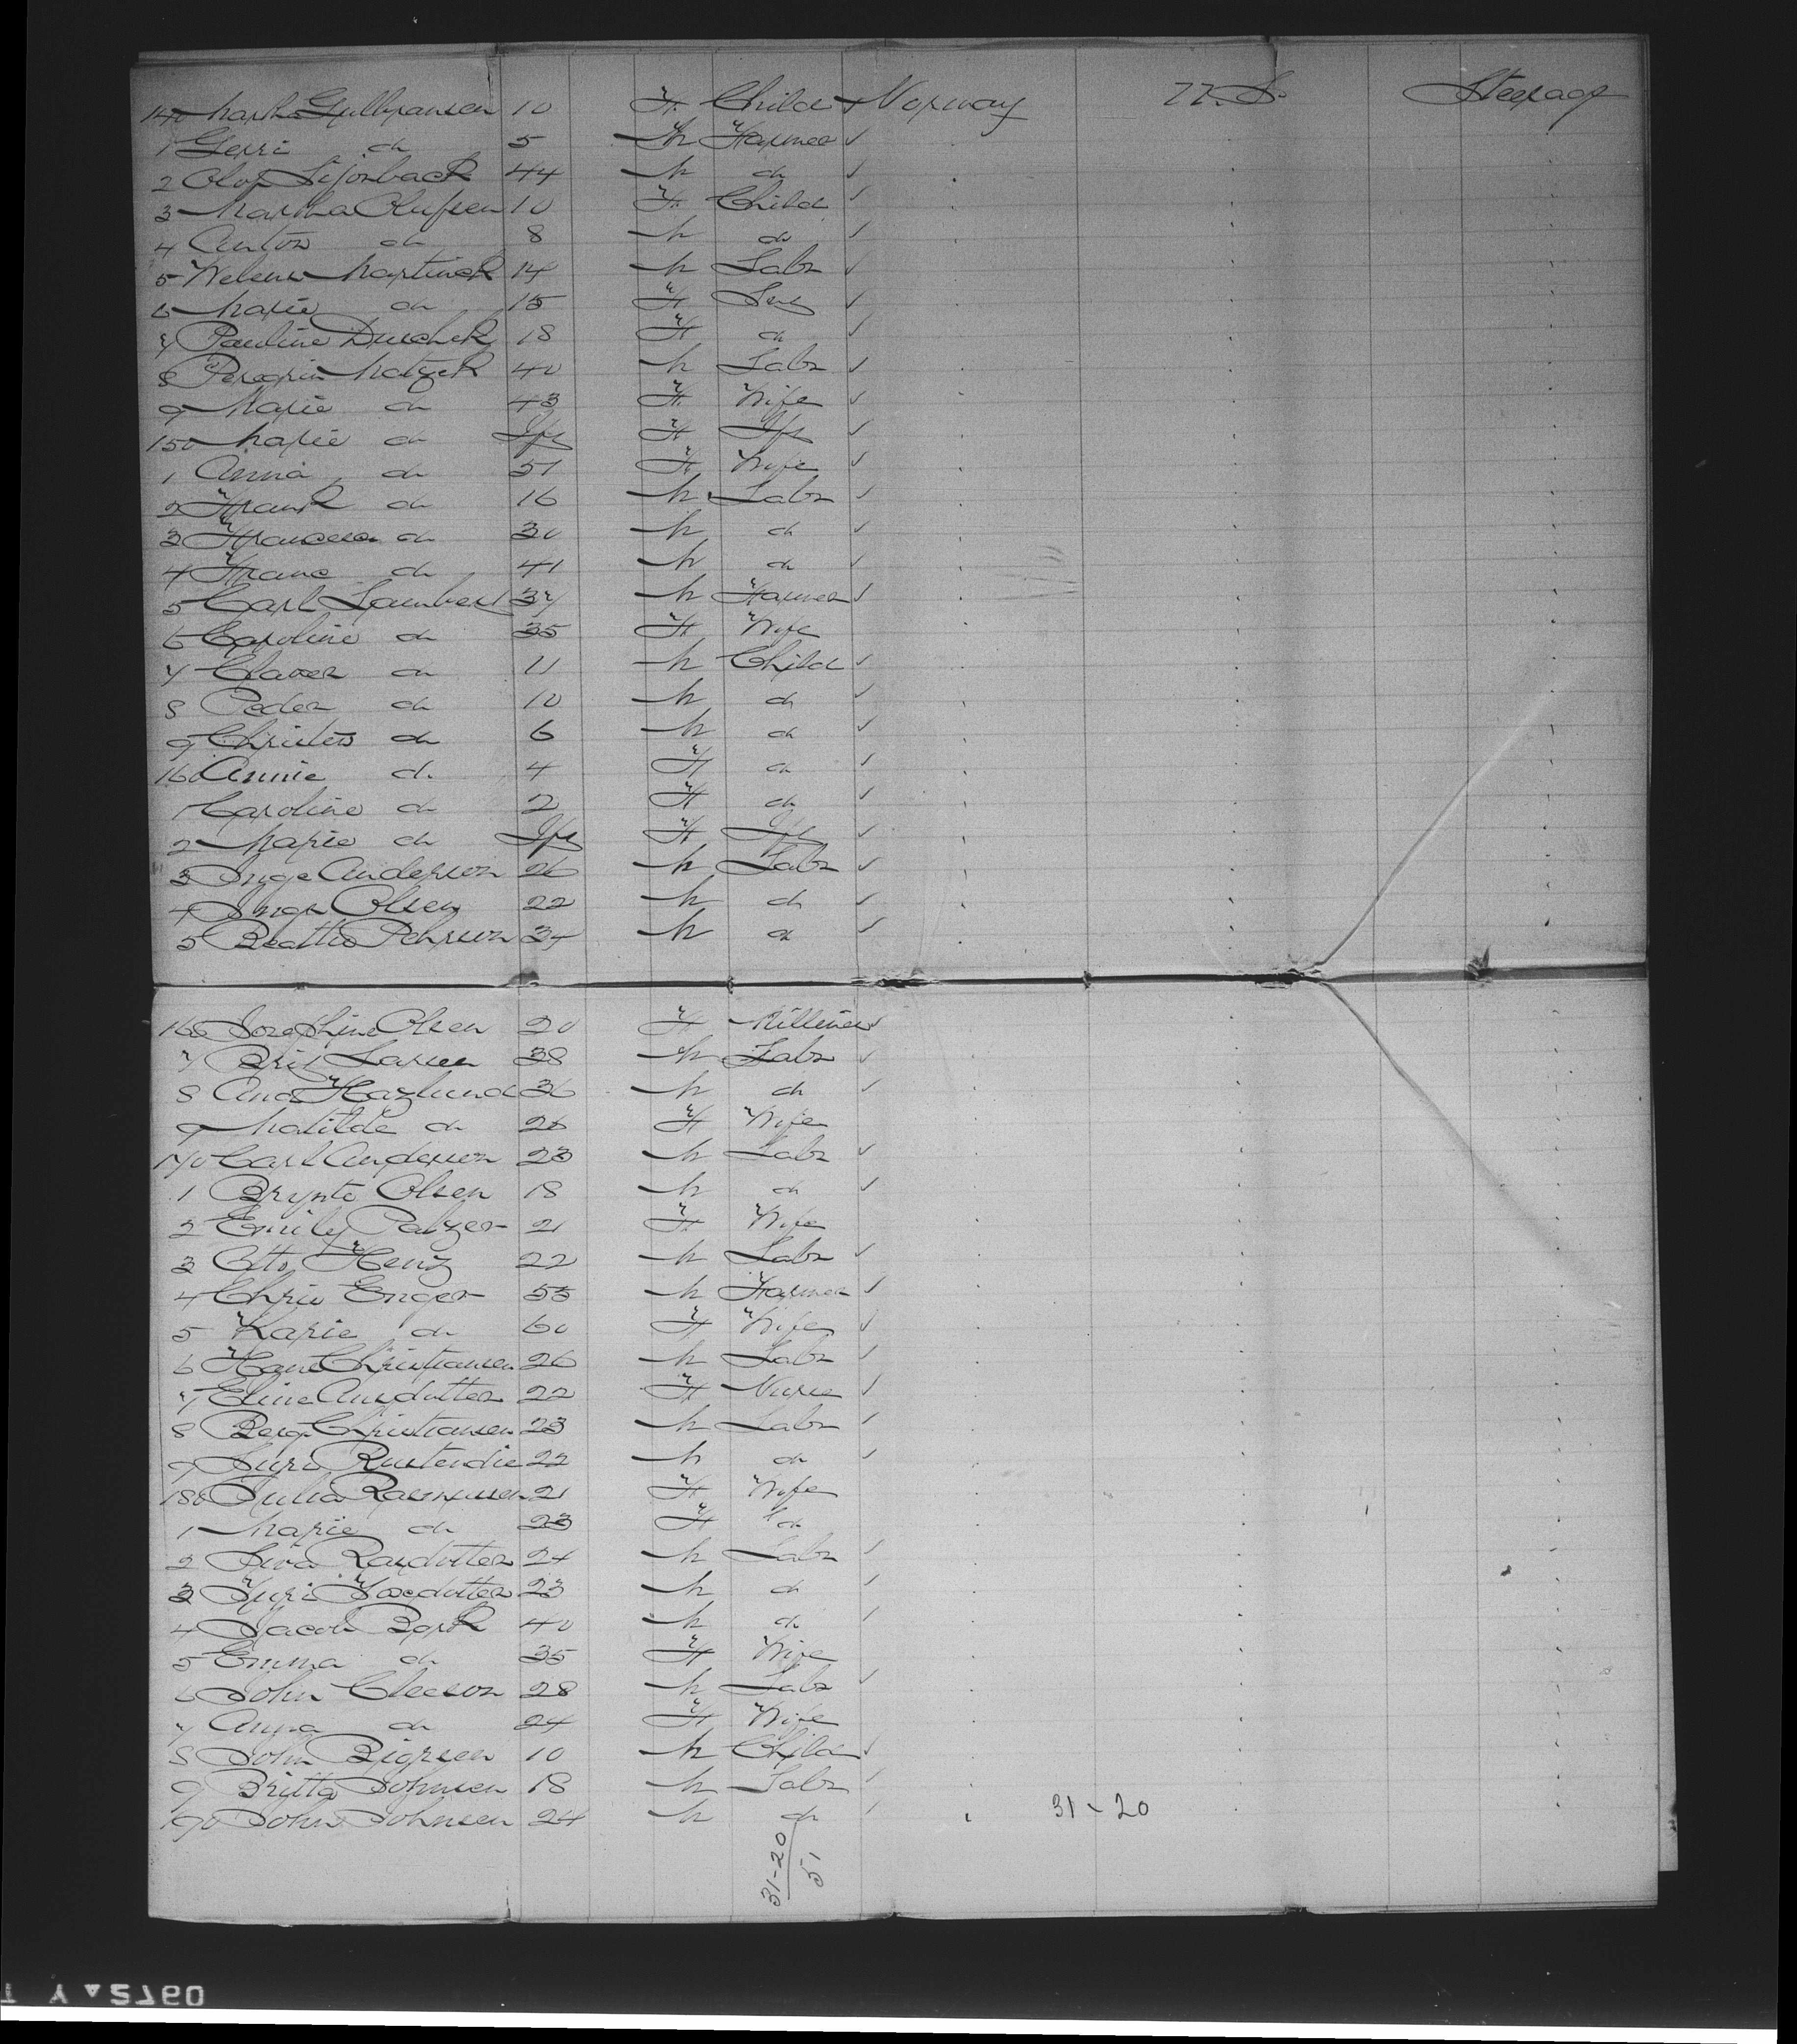 140 Martha Gulbransen 10 F. Child ✓ Norway U.S. Steerage
1 Gerri do 5 M Farmer ✓
2 Olof Sijonback 44 M do ✓
3 Martha Olufsen 10 F. Child ✓
4 Anton do 8 M do ✓
5 Welens Martinek 14 M Labr ✓
6 Marie do 15 F Ser ✓
7 Pauline Duschek 18 F do ✓
8 Peregrin Matzek 40 M Labr ✓
9 Marie do 43 F. Wife ✓
150 Marie do Inf F Inf ✓
1 Anna do 51 F Wife ✓
2 Frank do 16 M Labr ✓
3 Francesca do 30 M do ✓
4 Franc do 41 M do ✓
5 Carl Lambert 37 M Farmer ✓
6 Caroline do 35 F Wife
7 Claver do 11 M Child ✓
8 Peder do 10 M do ✓
9 Christes do 6 M do ✓
160 Annie do 4 F do ✓
1 Caroline do 2 F do ✓
2 Marie do Inf F Inf ✓
3 Inge Anderson 26 M Labr ✓
4 Inga Olsen 22 M do ✓
5 Beatha Pehrson 34 M do ✓
166 Josephine Olsen 20 F Milliner ✓
7 Brit Larsen 38 M Labr ✓
8 And Hazlund 36 M do ✓
9 Matilde do 28 F Wife
170 Carl Anderson 23 M Labr ✓
1 Brynte Olsen 18 M do ✓
2 Emily Palzer 21 F Wife
3 Otto Henz 22 M Labr ✓
4 Chris Enger 55 M Farmer ✓
5 Karie do 60 F Wife ✓
6 Hans Christiansen 26 M Labr ✓
7 Eline Ansdutter 22 F Nurse ✓
8 Berg. Christiansen 23 M Labr ✓
9 Guri Rustendie 22 M do ✓
180 Julia Rasmussen 21 F Wife
1 Marie do 23 F do
2 Siva Rasdotter 24 M Labr ✓
3 Guri Joedutter 23 M do ✓
4 Jacob Bork 40 M do ✓
5 Emma do 35 F Wife
6 John Cleeson 28 M Labr ✓
7 Anna do 24 F Wife
8 John Bigrsen 10 M Child ✓
9 Britta Johnsen 18 M Labr ✓
190 John Johnsen 24 M do ✓ 31-20
31-20
51